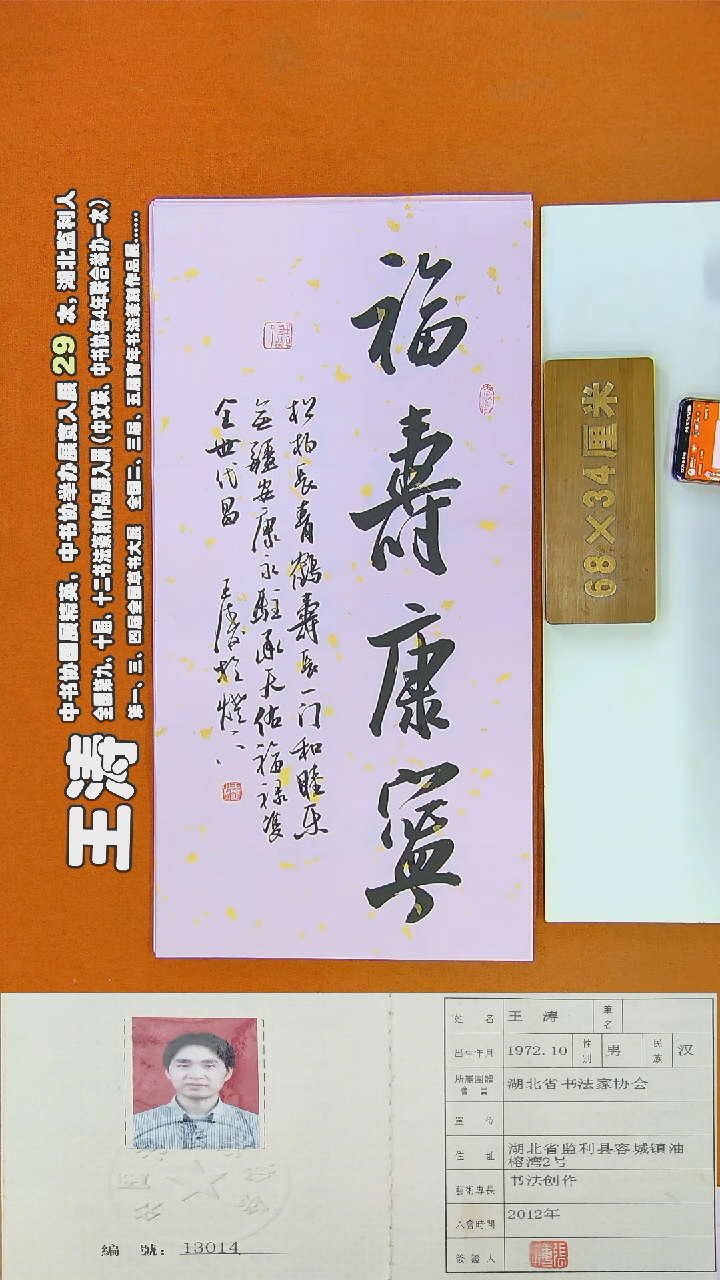 王涛
中书协国展精英，中书协举办展赛入展 29 次，湖北监利人
全国第九、十届、十二书法篆刻作品展入展（中文联、中书协每4年联合举办一次）
第一、三、四届全国草书大展 全国二、三届、五届青年书法篆刻作品展......
福壽康寧
松柏長青鶴壽長一门和睦乐
無疆安康永駐承天佑福禄双
全世代昌 王涛
68×34厘米
姓 名 王 涛 筆名
出生年月 1972.10 性别 男 民族 汉
所屬團體會員 湖北省书法家协会
單 位
住 址 湖北省监利县容城镇油榕湾2号
藝術專長 书法创作
入會時間 2012年
簽證人
編 號：13014